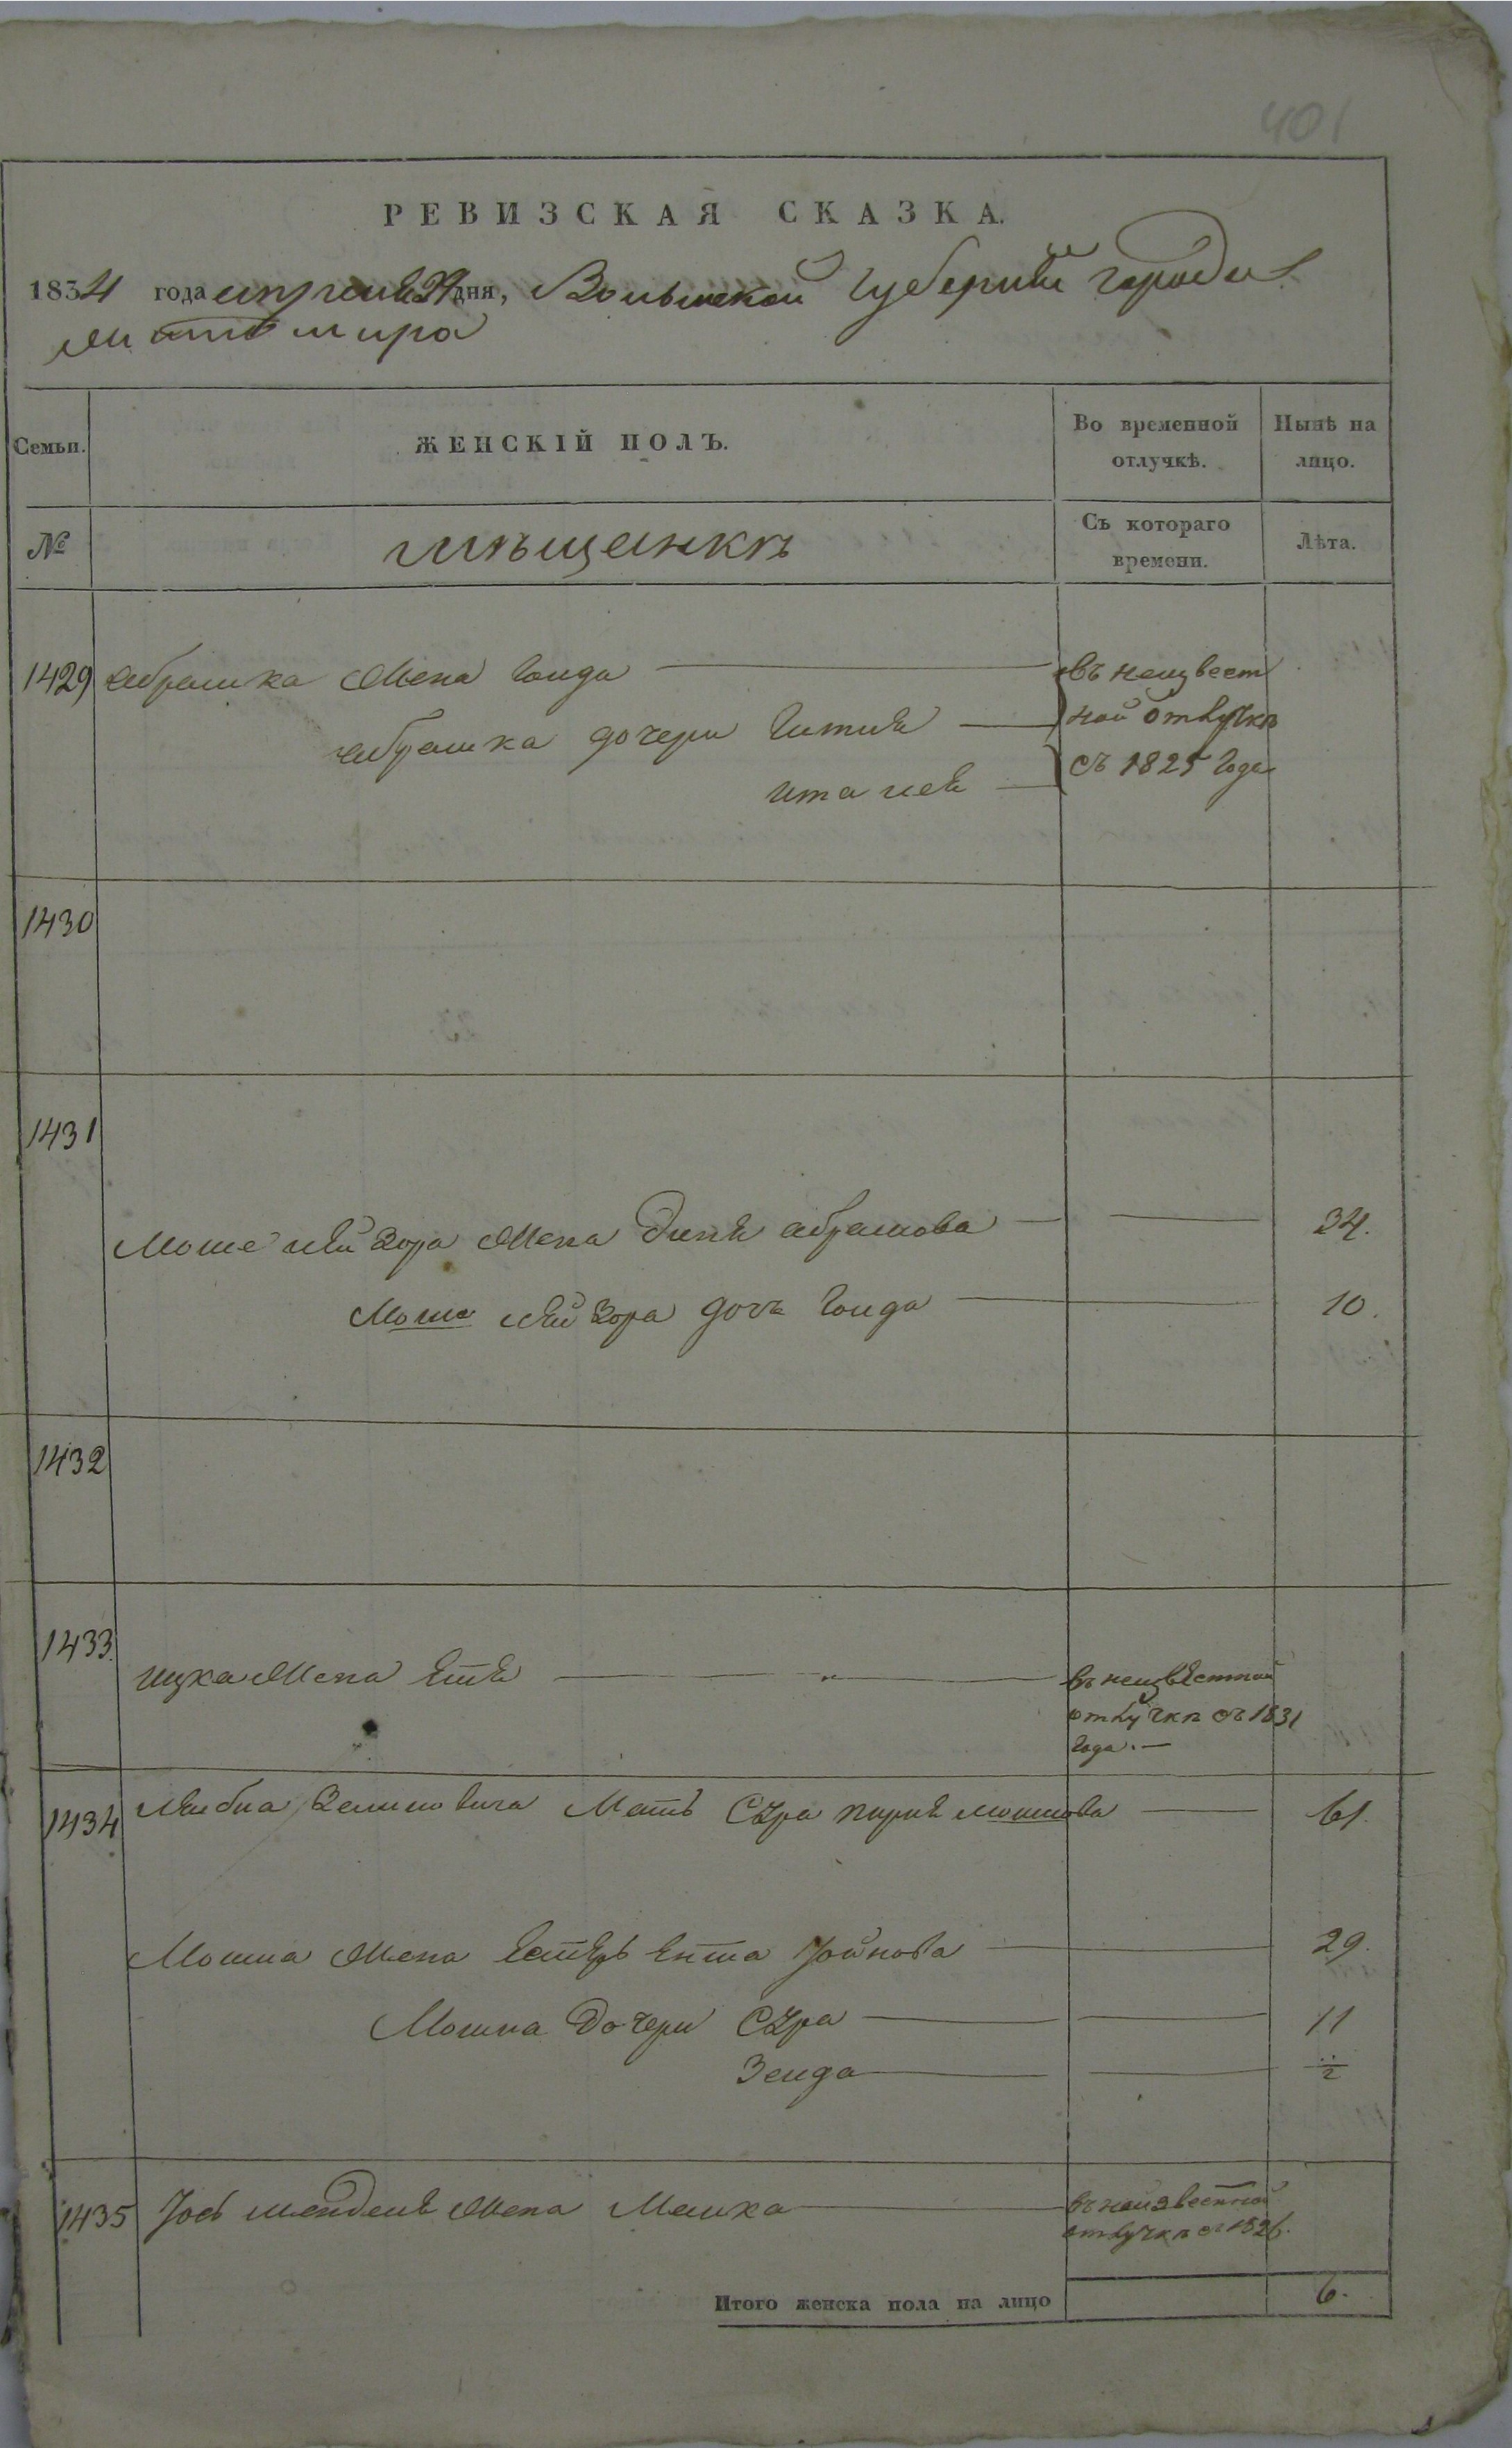 401
РЕВИЗСКАЯ СКАЗКА.
1834 года апреля дня, Волынской Губернии города
Житомира
Семьи.
ЖЕНСКІЙ ПОЛЪ.
Во временной отлучкѣ.
Нынѣ на лицо.
№
мѣщанкѣ
Съ котораго времени.
Лѣта.
1429 Абрамка Жена Гоида — въ неизвест
Абрамка дочери Гитля — ной отлучкѣ
Ита лея — съ 1825 Года
1430
1431
Моше лейзора Жена Диня абрамова — 34.
Моше лейзора дочь Гоида — 10.
1432
1433. ицка Жена Етя — въ неизвѣстной
отлучкѣ съ 1831
Года. —
1434 Лейбиа Зеликовича Мать Сура перля мошкова — 61.
Мошка Жена Естеръ Ента Іойнова — 29.
Мошка Дочери Сура — 11
Зеида — 1/2
1435 Іось мендели Жена Малка — въ неизвестной
отлучкѣ съ 1826.
Итого женска пола на лицо 6.